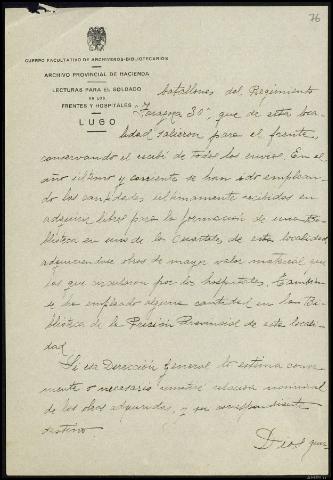 76
CUERPO FACULTATIVO DE ARCHIVEROS-BIBLIOTECARIOS
ARCHIVO PROVINCIAL DE HACIENDA
LECTURAS PARA EL SOLDADO
EN LOS
FRENTES Y HOSPITALES
LUGO
batallones del Regimiento
Zaragoza 30, que de esta loca-
lidad salieron para el frente,
conservando el recibí de todos los envios. En el
año último y corriente se han ido emplean-
do las cantidades ultimamente recibidas en
adquirir libros para la formación de una Bi-
blioteca en uno de los Cuarteles de esta localidad,
adquiriendose obras de mayor valor material que
las que por los hospitales. Tambien
se ha empleado alguna cantidad en la Bi-
blioteca de la Prisión Provincial de esta locali-
dad.
Si esa Dirección General lo estima conve-
niente o necesario remitiré relación nominal
de las obras adquiridas, y su correspondiente
destino
Dios guar-